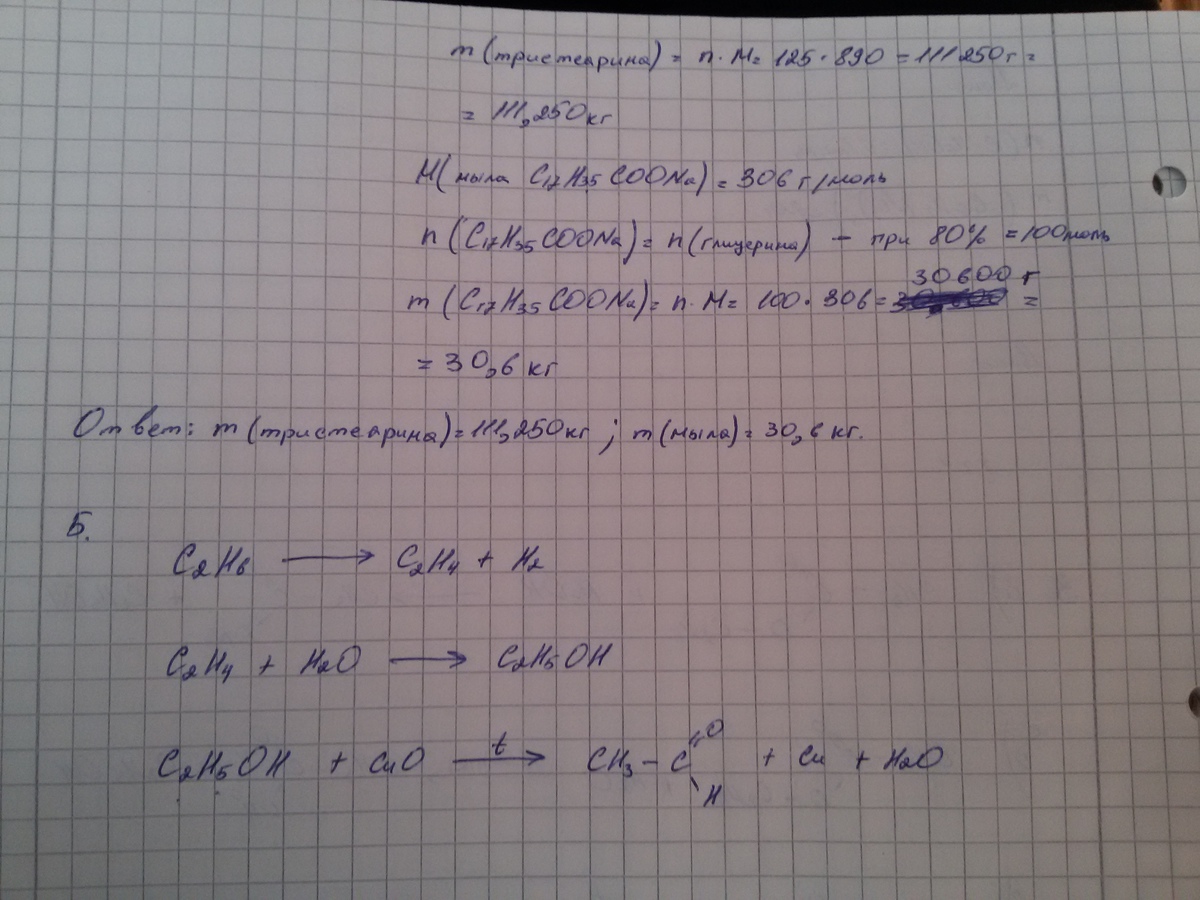 m(тристеарина) = n·M= 125·890 = 111250г =
= 111,250кг
M(мыла C17H35COONa) = 306 г/моль
n(C17H35COONa) = n(глицерина) – при 80% = 100моль
m(C17H35COONa) = n·M= 100·306= 30600 г =
= 30,6 кг
Ответ: m(тристеарина)=111,250кг; m(мыла)= 30,6 кг.
5.
C2H6 ⟶ C2H4 + H2
C2H4 + H2O ⟶ C2H5OH
C2H5OH + CuO —t→ CH3–C(=O)H + Cu + H2O